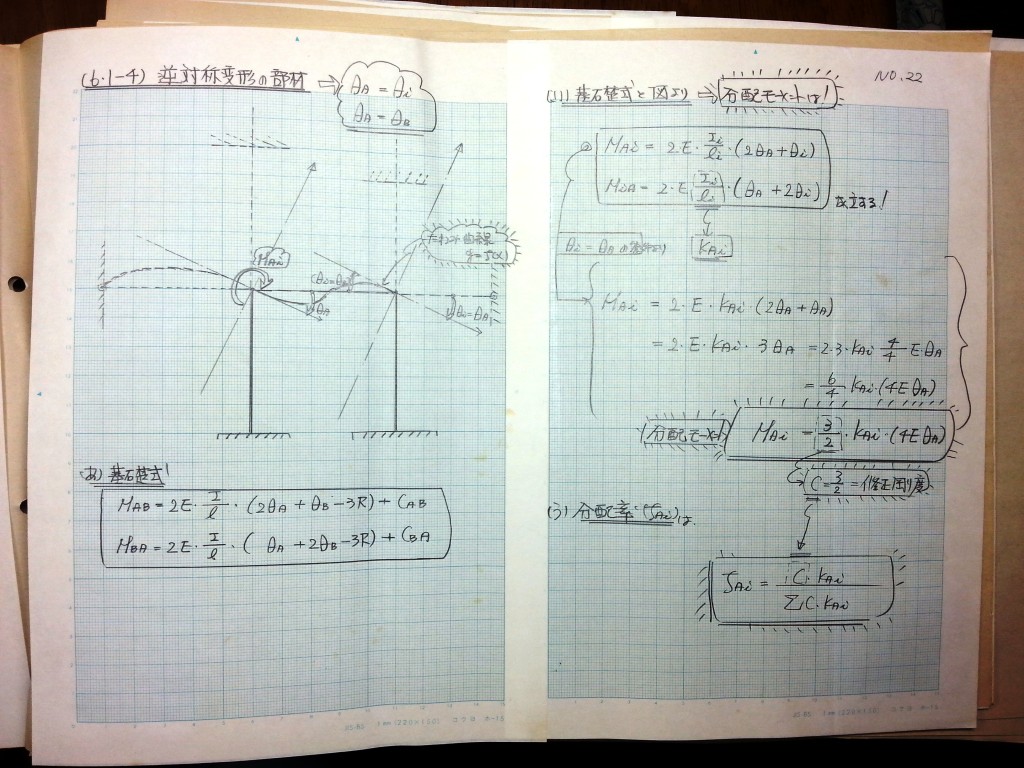 (6.1-4) 逆対称変形の部材 ⇒
θA = θi
θA = θB
MAi
たわみ曲線
y=f(x)
θi=θA
θA
θi=θA
あ) 基礎式!
MAB = 2E・I/l・(2θA + θB - 3R) + CAB
MBA = 2E・I/l・( θA + 2θB - 3R) + CBA
NO.22
(い) 基礎式と図より ⇒ 分配モーメントは!
MAi = 2・E・Ii/li・(2θA+θi)
MiA = 2・E・Ii/li・(θA + 2θi)
成立する!
kAi
θi = θAの条件より
MAi = 2・E・kAi・(2θA + θA)
= 2・E・kAi・3θA = 2・3・kAi 4/4 E・θA
= 6/4 kAi・(4EθA)
分配モーメント!
MAi = 3/2・kAi・(4EθA)
C = 3/2 = 修正剛度
(う) 分配率(ζAi)は、
ζAi = C・kAi / ΣC・kAi